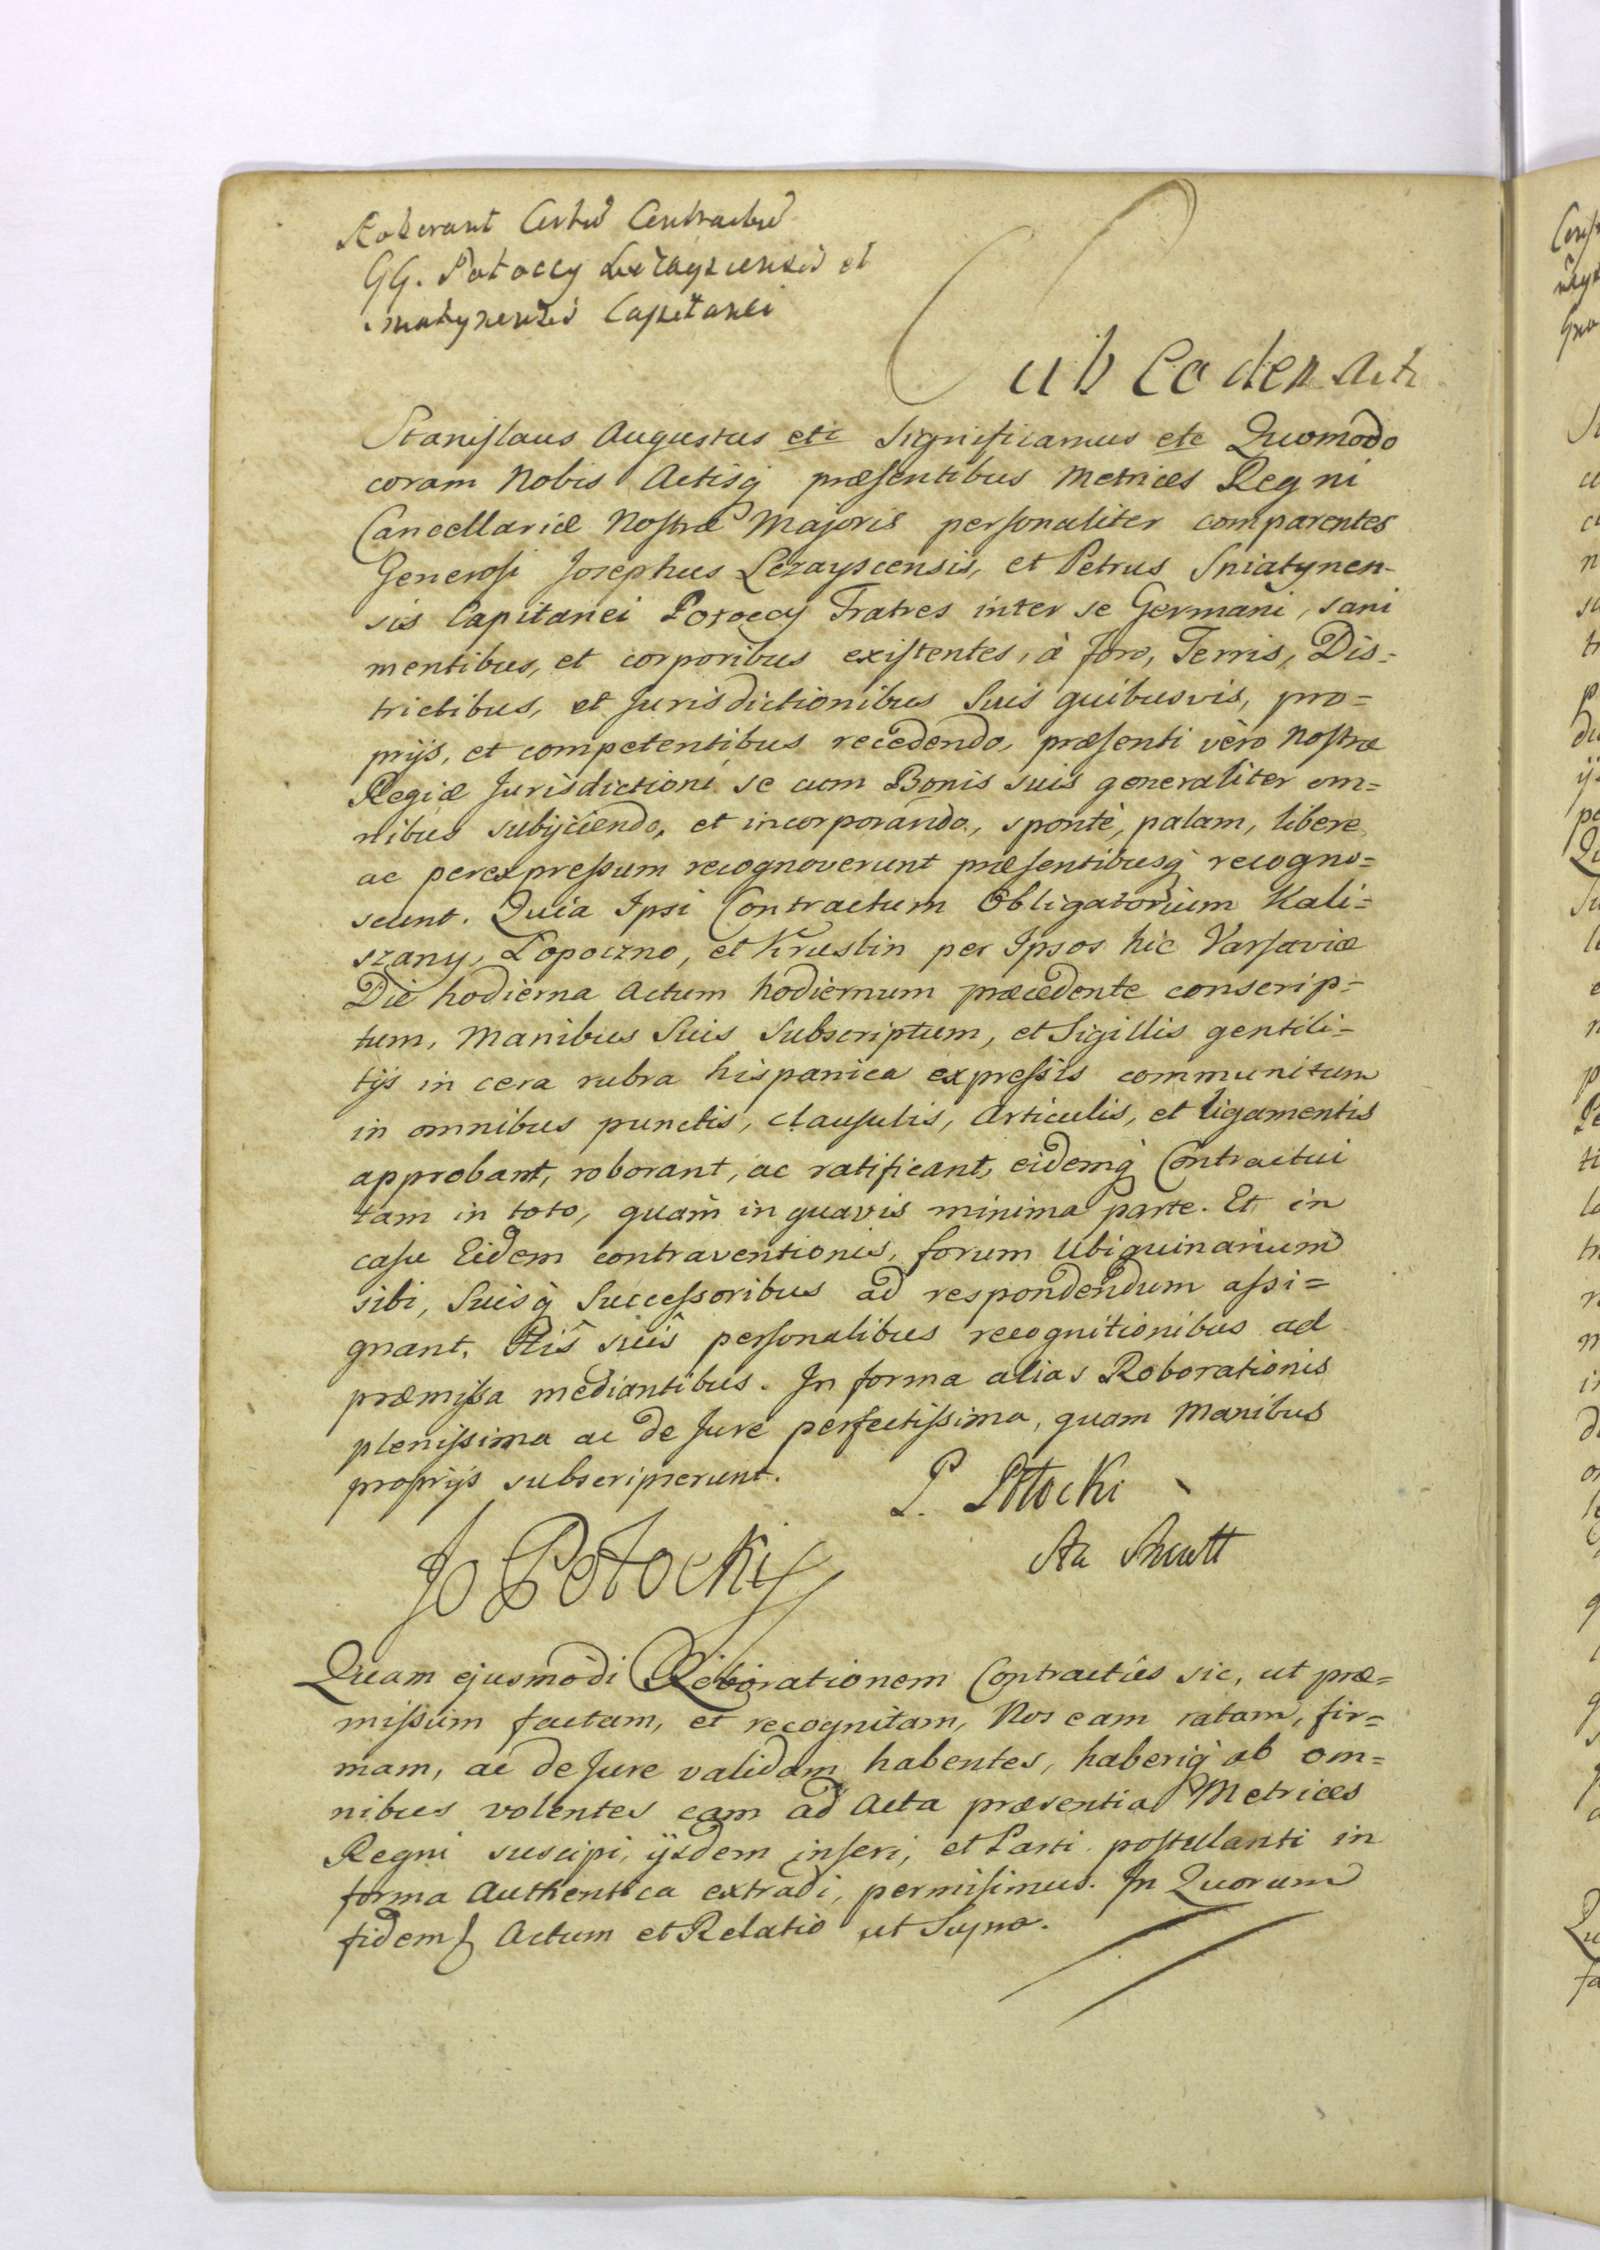 Roborant Certus Contractus
GG. Potoccy Leżayscensis et
Capitanei
Sub eodem Actu
Stanislaus Augustus etc Significamus etc Quomodo
coram Nobis Actisq præsentibus Metrices Regni
Cancellariæ Nostræ Majoris personaliter comparentes
Generosi Josephus Lezayscensis, et Petrus Sniatynen-
sis Capitanei Potoccy Fratres inter se Germani, sani
mentibus, et corporibus existentes, à foro, Terris, Dis=
trictibus, et Jurisdictionibus Suis quibusvis, pro=
prijs, et competentibus recedendo, præsenti vèro Nostræ
Regiæ Jurisdictioni se cum Bonis suis generaliter om=
nibus subijciendo, et incorporando, spontè, palam, libere
ac per expressum recognoverunt præsentibusq recogno=
scunt. Quia Ipsi Contractum Obligatorium Kali=
szany, Lopoczno, et Krustin per Ipsos hic Varsaviæ
Die hodierna Actum hodiernum præcedente conscrip=
tum, Manibus Suis Subscriptum, et Sigillis gentili=
tijs in cera rubra hispanica expressis communitum
in omnibus punctis, clausulis, Articulis, et ligamentis
approbant, roborant, ac ratificant, eidemq Contractui
tam in toto, quàm in quavis minima parte. Et in
casu Eidem contraventionis, forum Ubiquinarium
sibi, Suisq Successoribus ad respondendum assi=
gnant. His suis personalibus recognitionibus ad
præmissa mediantibus. In forma alias Roborationis
plenissima ac de Jure perfectissima, quam Manibus
proprijs subscripserunt.
P. Potocki
Jo Potocki
Quam ejusmodi Roborationem Contractûs sic, ut præ=
missum factam, et recognitam, Nos eam ratam, fir=
mam, ac de Jure validam habentes, haberiq ab om=
nibus volentes eam ad Acta præsentia Metrices
Regni suscipi, ijsdem inseri, et Parti postulanti in
forma Authentica extradi, permisimus. In Quorum
fidem Actum et Relatio ut Supra.